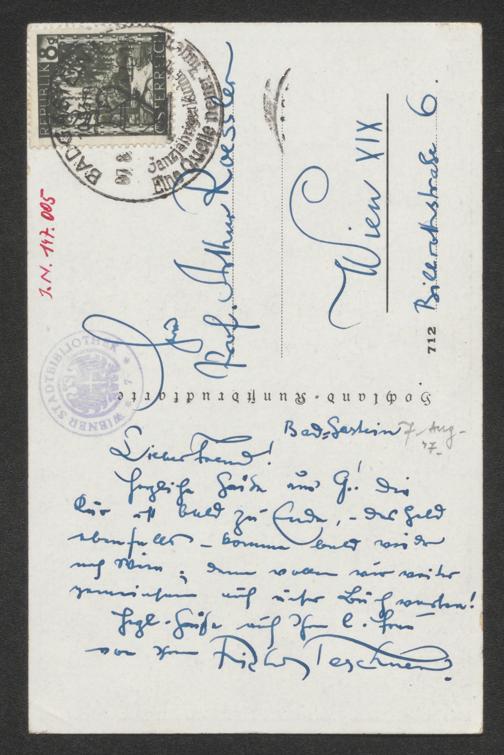 8g
REPUBLIK ÖSTERREICH
BADGASTEIN
Ganzjähriger
Eine Quelle neuer
J.N. 147.005
WIENER STADTBIBLIOTHEK
* 7 *
Hochland-Kunstdruckkarte
712
Prof. Arthur Roessler
Wien XIX
Billrothstraße 6.
Bad-Gastein 7. Aug.
47.
Lieber Freund!
Herzliche Grüße aus G.! die
Kur ist bald zu Ende, - das Geld
ebenfalls - komme bald wieder
nach Wien; dann wollen wir weiter
gemeinsam auf unser Buch warten!
Herzl. Grüße auch Ihrer l. Frau
von Ihrem Richard Teschner